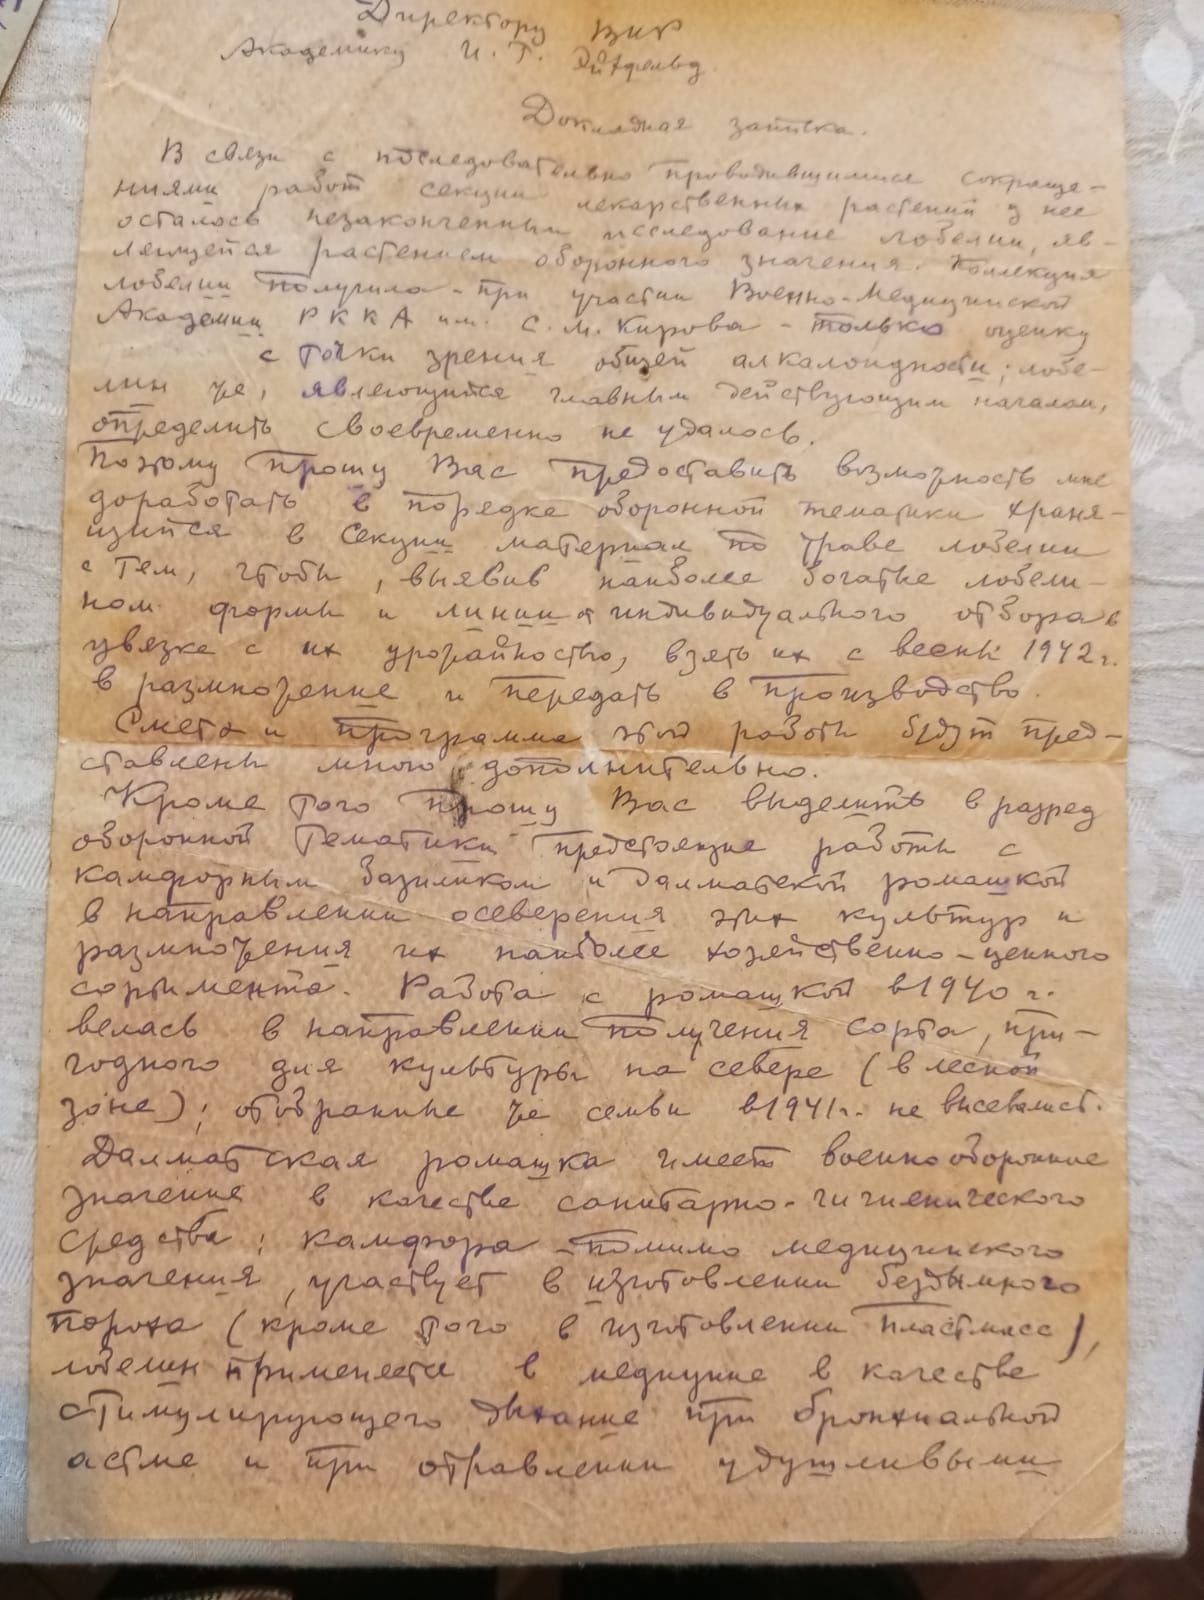 Директору ВИР
Академику И. Г. Эйхфельд.
Докладная записка.
В связи с последовательно проводившимися сокраще-
ниями работ секции лекарственных растений у нее
осталось незаконченным исследование лобелии, яв-
ляющейся растением оборонного значения. Коллекция
лобелии получила - при участии Военно-Медицинской
Академии РККА им. С. М. Кирова - только оценку
с точки зрения общей алкалоидности; лобе-
лин же, являющийся главным действующим началом,
определить своевременно не удалось.
Поэтому прошу Вас предоставить возможность мне
доработать в порядке оборонной тематики храня-
щийся в Секции материал по траве лобелии
с тем, чтобы, выявив наиболее богатые лобели-
ном формы и линии индивидуального отбора в
увязке с их урожайностью, взять их с весны 1942 г.
в размножение и передать в производство.
Смета и программа этой работы будут пред-
ставлены мною дополнительно.
Кроме того прошу Вас выделить в разряд
оборонной тематики предстоящие работы с
камфорным базиликом и далматской ромашкой
в направлении осеверения этих культур и
размножения их наиболее хозяйственно-ценного
сортимента. Работа с ромашкой в 1940 г.
велась в направлении получения сорта, при-
годного для культуры на севере (в лесной
зоне); отобранные же семьи в 1941 г. не высевались.
Далматская ромашка имеет военнооборонное
значение в качестве санитарно-гигиенического
средства; камфора - помимо медицинского
значения, участвует в изготовлении бездымного
пороха (кроме того в изготовлении пластмасс),
лобелин применяется в медицине в качестве
стимулирующего дыхание при бронхиальной
астме и при отравлении удушливыми